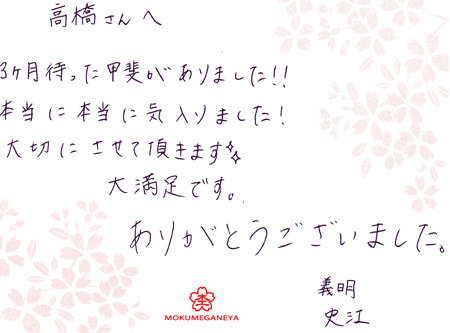 高橋さんへ
3ヶ月待った甲斐がありました!!
本当に本当に気入りました!
大切にさせて頂きます
大満足です。
ありがとうございました。
義明
史江
MOKUMEGANEYA